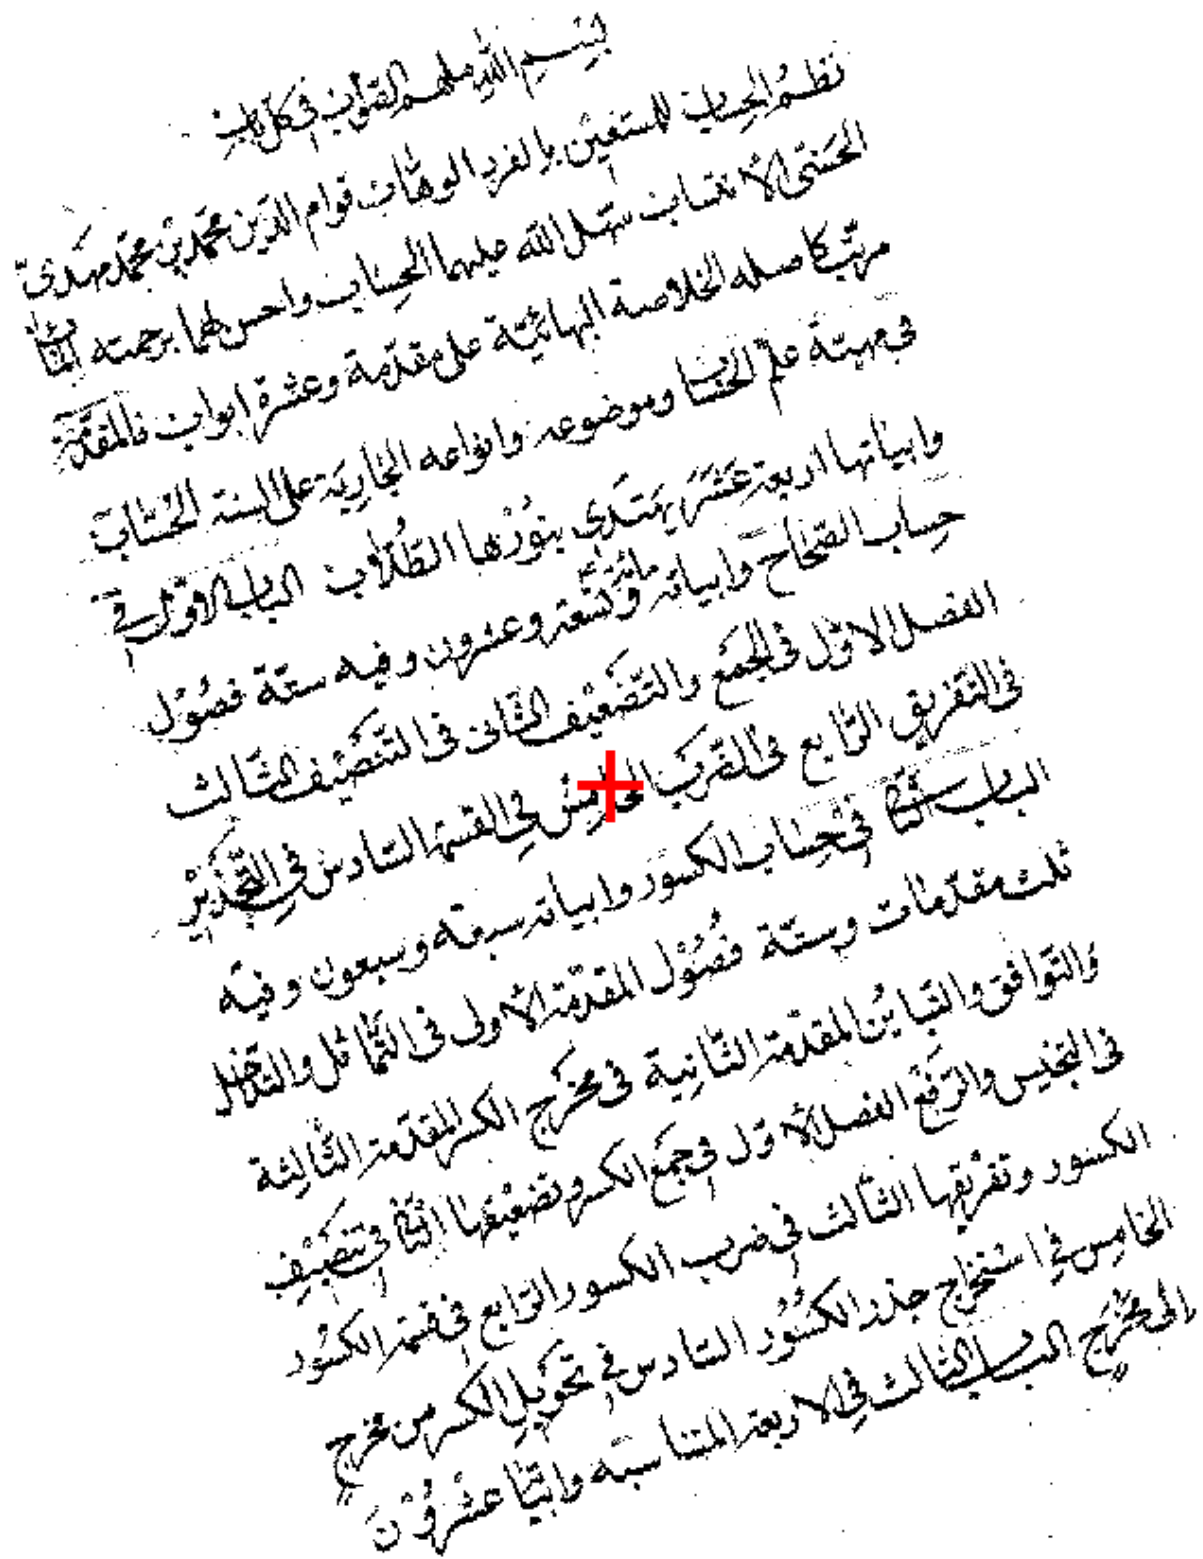 بسم الله ملهم الصواب فی كل باب
نظم الحساب للمستعین بالفرد الوهاب قوام الدین محمد بن محمد مهدی
الحسنی الانتساب سهل الله علیهما الحساب واحسن لهما برحمته المآب
مرتب كاصله الخلاصة البهائیة علی مقدمة وعشرة ابواب فالمقدمة
فی مهیة علم الحساب وموضوعه وانواعه الجاریة علی السنة الحساب
وابیاتها اربعة عشر یهتدی بنورها الطلاب الباب الاول فی
حساب الصحاح وابیاته مائة وتسعة وعشرون وفیه ستة فصول
الفصل الاول فی الجمع والتضعیف الثانی فی التنصیف الثالث
فی التفریق الرابع فی الضرب الخامس فی القسمة السادس فی التجذیر
الباب الثانی فی حساب الكسور وابیاته سبعة وسبعون وفیه
ثلث مقدمات وستة فصول المقدمة الاولی فی التماثل والتداخل
والتوافق والتباین المقدمة الثانیة فی مخرج الكسر المقدمة الثالثة
فی التجنیس والرفع الفصل الاول فی جمع الكسر وتضعیفها الثانی فی تنصیف
الكسور وتفریقها الثالث فی ضرب الكسور الرابع فی قسمة الكسور
الخامس فی استخراج جذر الكسور السادس فی تحویل الكسر من مخرج
الی مخرج الباب الثالث فی الاربعة المتناسبة وابیاتها عشرون